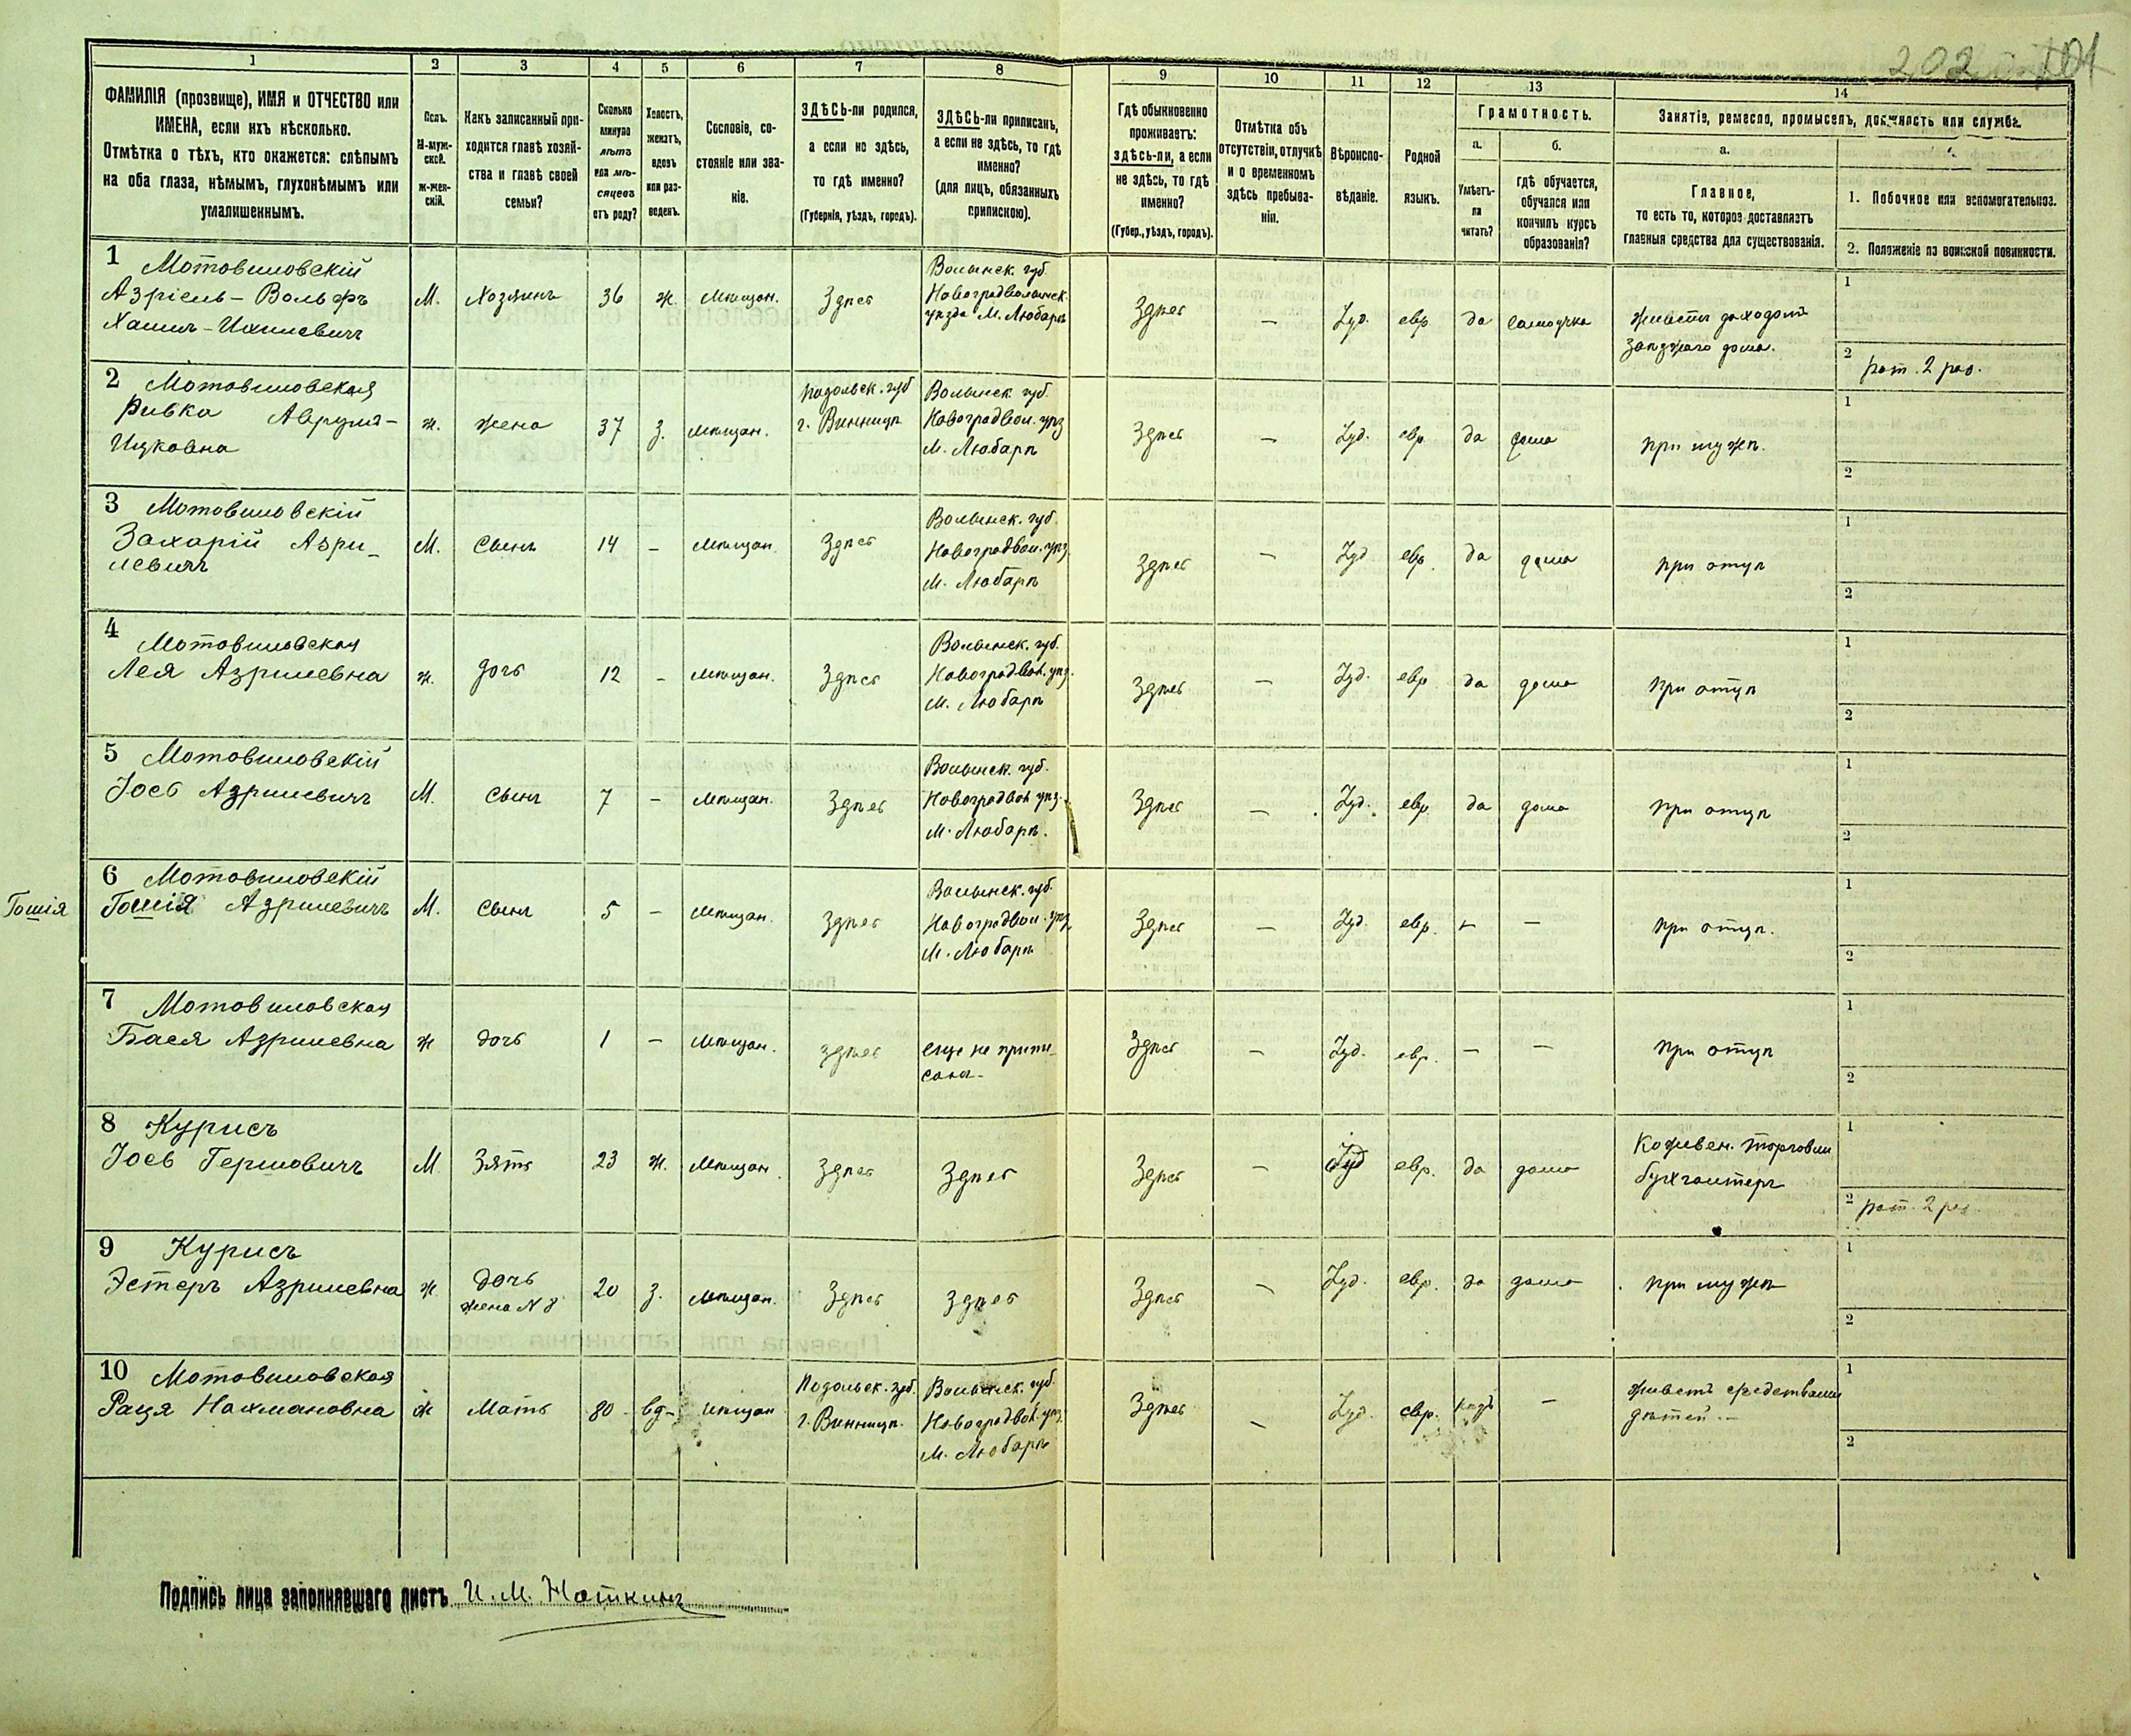 202
1
2
3
4
5
6
7
8
9
10
11
12
13
14
ФАМИЛІЯ (прозвище), ИМЯ и ОТЧЕСТВО или
ИМЕНА, если ихъ нѣсколько.
Отмѣтка о тѣхъ, кто окажется: слѣпымъ
на оба глаза, нѣмымъ, глухонѣмымъ или
умалишеннымъ.
Полъ.
М-муж-
ской.
ж-жен-
скій.
Какъ записанный при-
ходится главѣ хозяй-
ства и главѣ своей
семьи?
Сколько
минуло
лѣтъ
или мѣ-
сяцевъ
отъ роду?
Холостъ,
женатъ,
вдовъ
или раз-
веденъ.
Сословіе, со-
стояніе или зва-
ніе.
ЗДѢСЬ-ли родился,
а если не здѣсь,
то гдѣ именно?
(Губернія, уѣздъ, городъ).
ЗДѢСЬ-ли приписанъ,
а если не здѣсь, то гдѣ
именно?
(для лицъ, обязанныхъ
припискою).
Гдѣ обыкновенно
проживаетъ:
здѣсь-ли, а если
не здѣсь, то гдѣ
именно?
(Губер., уѣздъ, городъ).
Отмѣтка объ
отсутствіи, отлучкѣ
и о временномъ
здѣсь пребыва-
ніи.
Вѣроиспо-
вѣданіе.
Родной
языкъ.
Грамотность.
а.
Умѣетъ-
ли
читать?
б.
гдѣ обучается,
обучался или
кончилъ курсъ
образованія?
Занятіе, ремесло, промыселъ, должность или служба.
а.
Главное,
то есть то, которое доставляетъ
главныя средства для существованія.
1. Побочное или вспомогательное.
2. Положеніе по воинской повинности.
1 Мотовиловскій
Азріель-Вольфъ
Хаимъ-Ихилевичъ
М.
Хозяинъ
36
ж.
Мѣщан.
Здѣсь
Волынск. губ.
Новоградволынск.
уѣзда М. Любаръ
Здѣсь
—
Іуд.
евр.
да
самоучка
живетъ доходомъ
1
2 рат. 2 раз.
2 Мотовиловская
Ривка Аврумъ-
Ицковна
ж.
жена
37
з.
мѣщан.
Подольск. губ
г. Винница
Волынск. губ.
Новоградвол. уѣз
М. Любаръ
Здѣсь
—
Іуд.
евр.
да
дома
при мужѣ.
1
2
3 Мотовиловскій
Захарій Азри-
левичъ
М.
Сынъ
14
-
мѣщан.
Здѣсь
Волынск. губ.
Новоградвол. уѣз.
М. Любаръ
Здѣсь
—
Іуд
евр.
да
дома
при отцѣ
1
2
4
Мотовиловская
Лея Азрилевна
ж.
дочь
12
-
мѣщан.
Здѣсь
Волынск. губ.
Новоградвол. уѣз.
М. Любаръ
Здѣсь
—
Іуд.
евр
да
дома
при отцѣ
1
2
5 Мотовиловскій
Іосъ Азрилевичъ
М.
Сынъ
7
-
мѣщан.
Здѣсь
Волынск. губ.
Новоградвол. уѣз.
М. Любаръ.
Здѣсь
—
Іуд.
евр.
да
дома
при отцѣ
1
2
6 Мотовиловскій
Гошія
Гошія Азрилевичъ
М.
Сынъ
5
-
мѣщан.
Здѣсь
Волынск. губ.
Новоградвол. уѣз.
М. Любаръ
Здѣсь
—
Іуд.
евр.
—
—
при отцѣ.
1
2
7 Мотовиловская
Бася Азрилевна
ж
дочь
1
—
мѣщан.
здѣсь
еще не припи-
сана
Здѣсь
—
Іуд.
евр.
—
—
при отцѣ
1
2
8 Курисъ
Іосъ Гершовичъ
М.
Зять
23
ж.
мѣщан.
Здѣсь
Здѣсь
Здѣсь
—
Іуд
евр.
да
дома
Кожевен. торговли
бухгалтеръ
1
2 рат. 2 раз
9 Курисъ
Эстеръ Азрилевна
ж
дочь
жена N 8
20
з.
мѣщан.
Здѣсь
здѣсь
Здѣсь
—
Іуд.
евр.
да
дома
при мужѣ
1
2
10 Мотовиловская
Рация Нахмановна
ж
Мать
80
вд-
мѣщан
Подольск. губ.
г. Винница.
Волынск. губ.
Новоградвол. уѣз.
М. Любаръ
Здѣсь
—
Іуд.
евр.
—
живетъ средствами
дѣтей.—
1
2
Подпись лица заполнявшаго листъ И. М. Ноткинъ